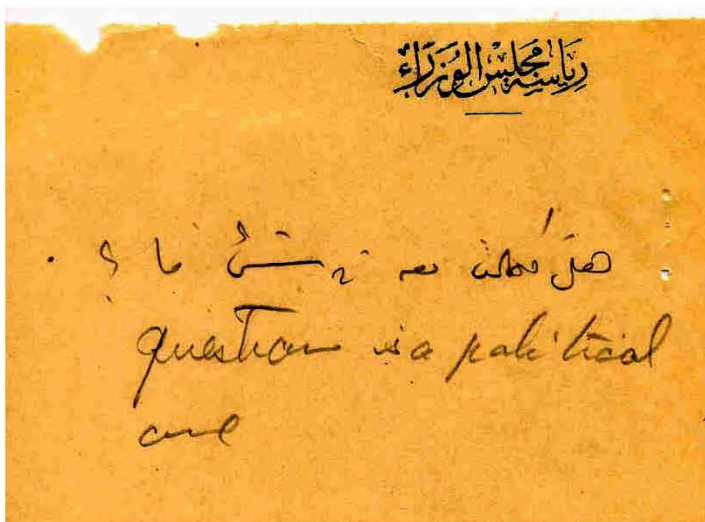 رياسة مجلس الوزراء
هل تكلمت معه في شئ ما ؟
question is a political
one